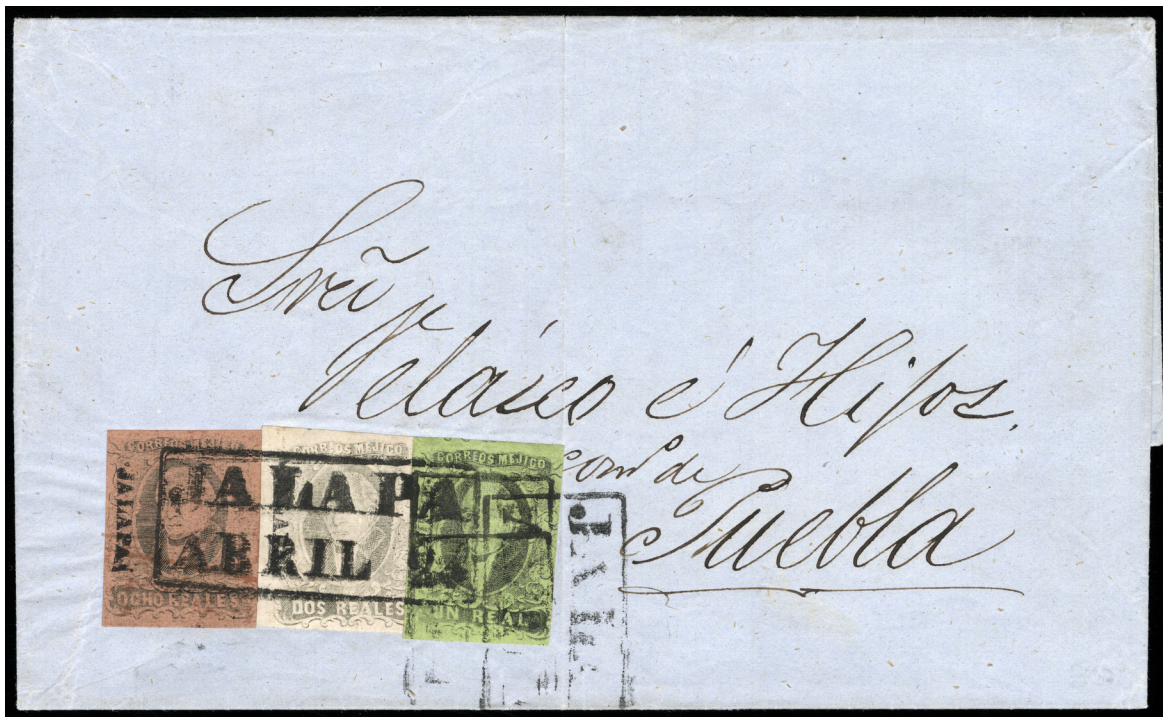 Velasco é Hijos.
Puebla
CORREOS MEJICO
JALAPA
OCHO REALES
CORREOS MEJICO
DOS REALES
CORREOS MEJICO
UN REAL
JALAPA
ABRIL